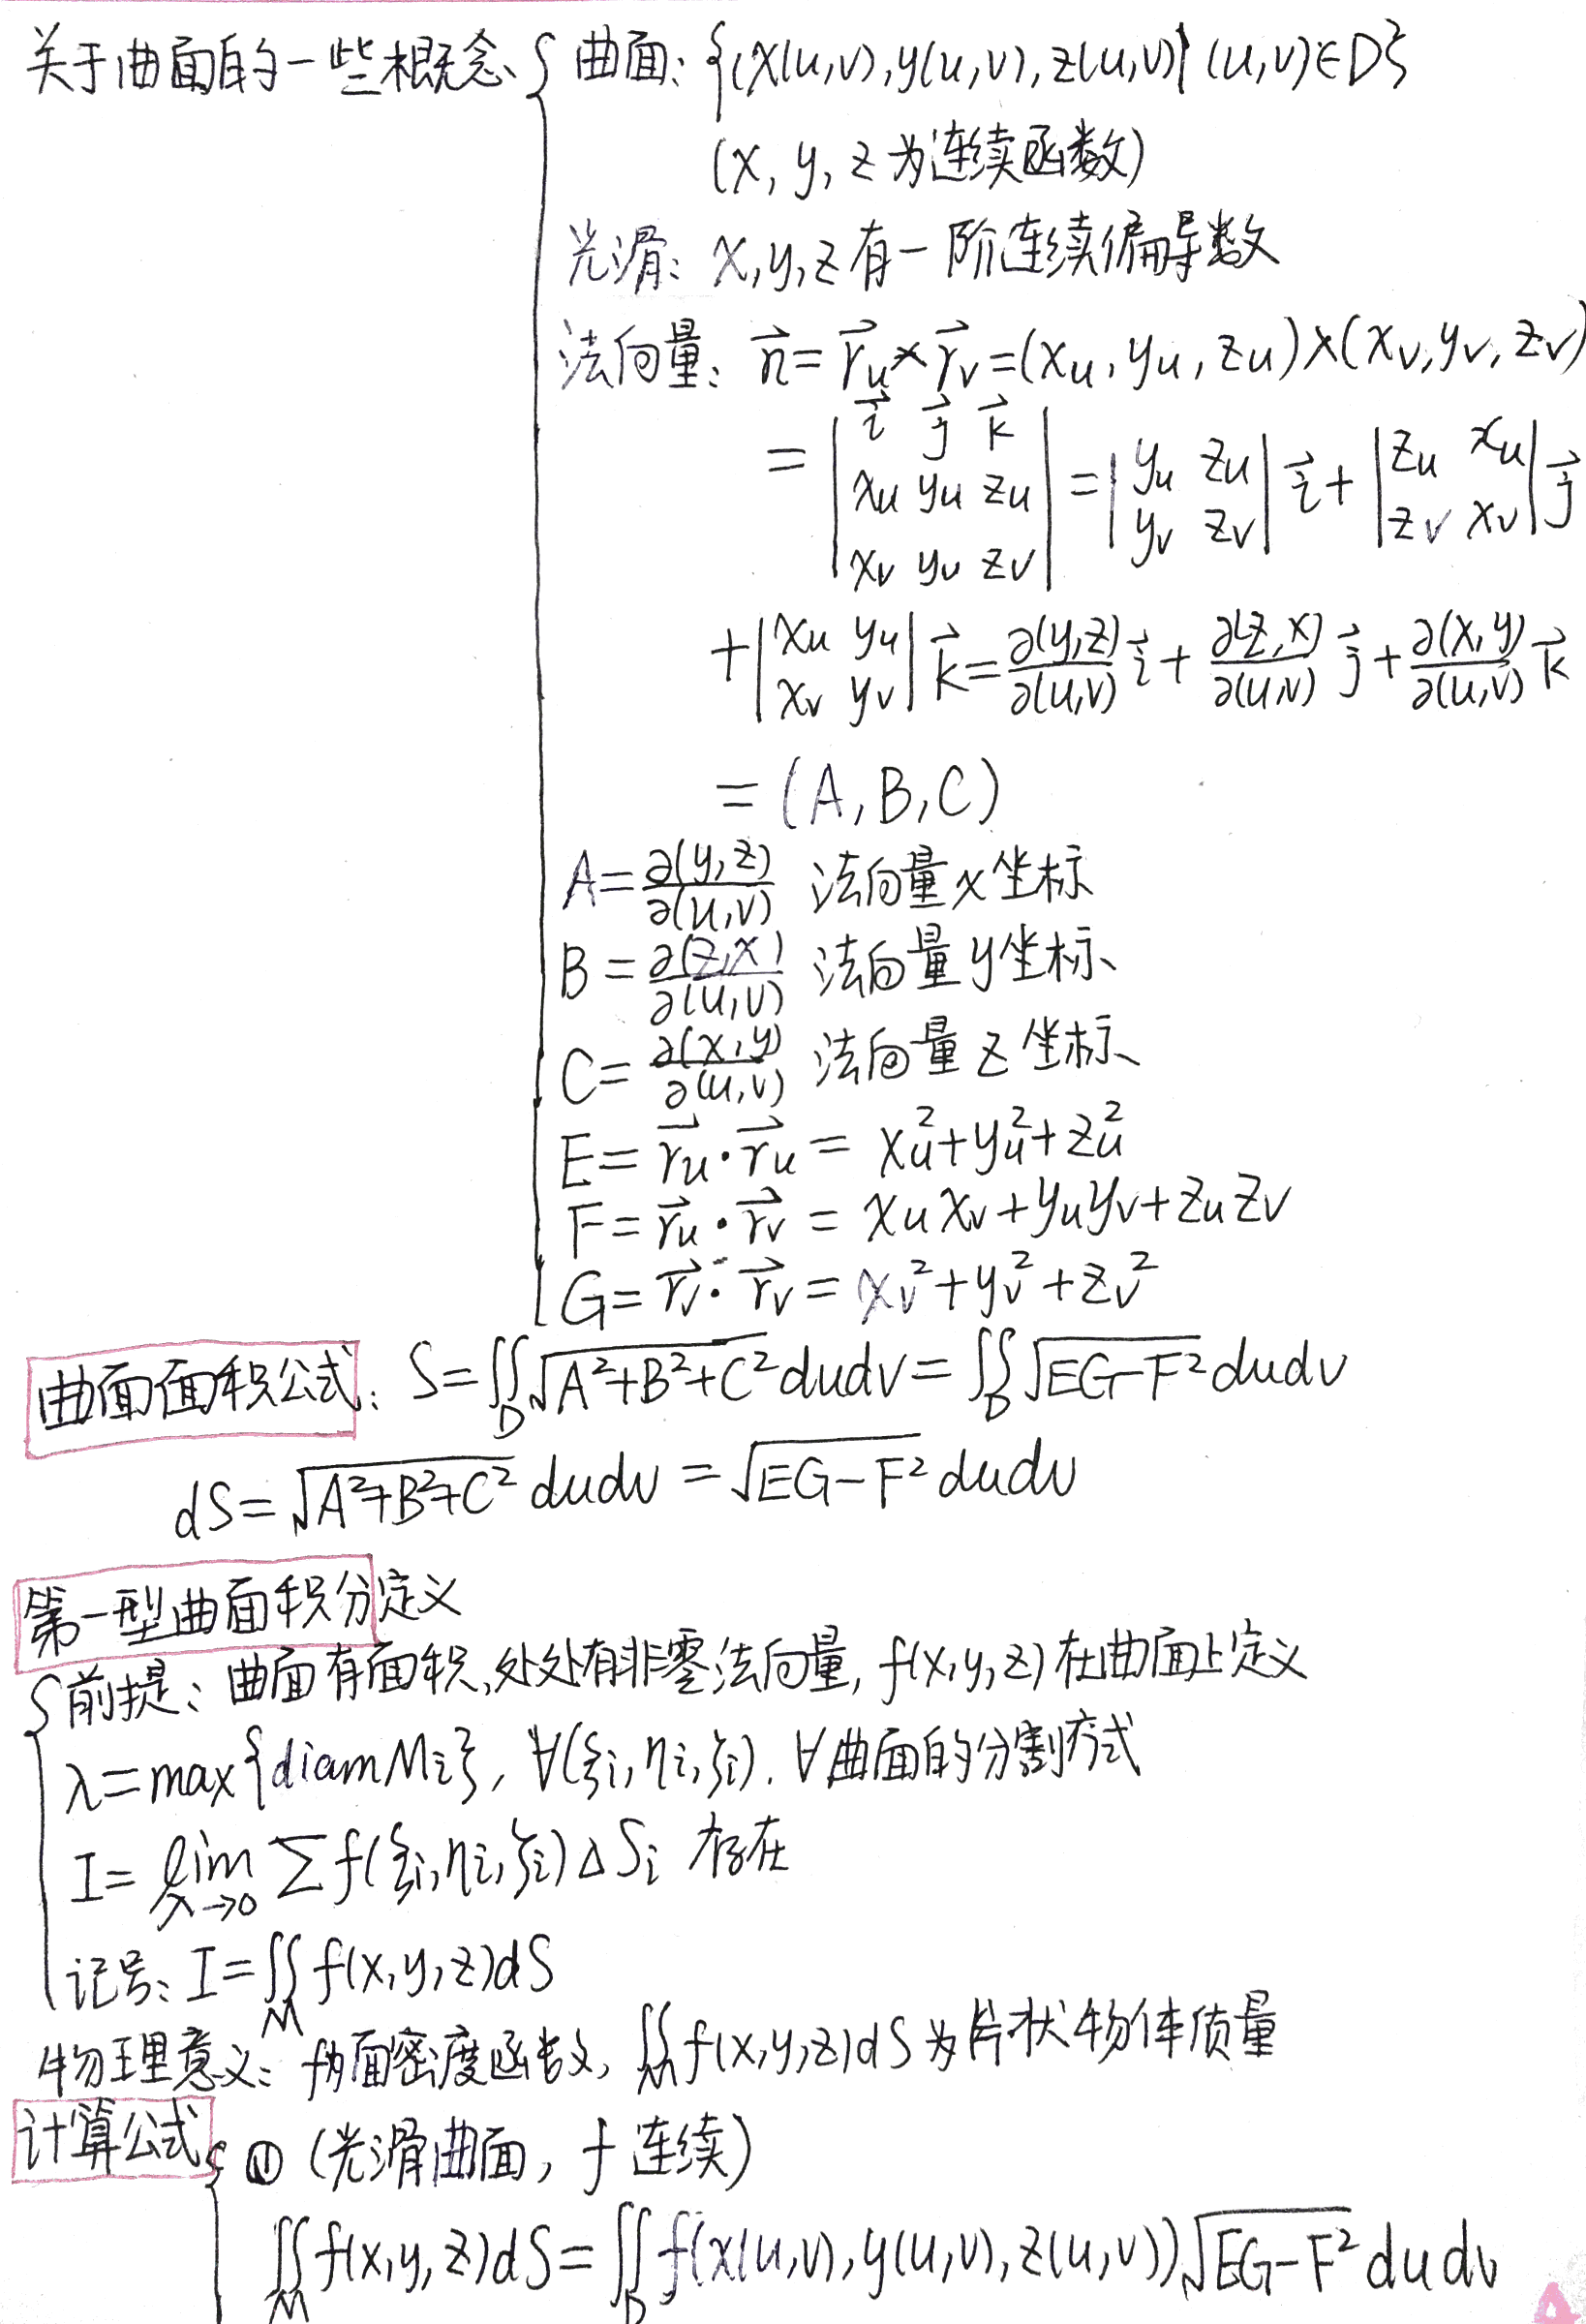 关于曲面的一些概念 { 曲面: {(x(u,v), y(u,v), z(u,v)) | (u,v)∈D}
(x, y, z 为连续函数)
光滑: x, y, z 有一阶连续偏导数
法向量: n⃗ = r⃗_u × r⃗_v = (x_u, y_u, z_u) × (x_v, y_v, z_v)
= |i⃗ j⃗ k⃗; x_u y_u z_u; x_v y_v z_v| = |y_u z_u; y_v z_v| i⃗ + |z_u x_u; z_v x_v| j⃗
+ |x_u y_u; x_v y_v| k⃗ = ∂(y,z)/∂(u,v) i⃗ + ∂(z,x)/∂(u,v) j⃗ + ∂(x,y)/∂(u,v) k⃗
= (A, B, C)
A = ∂(y,z)/∂(u,v) 法向量x坐标
B = ∂(z,x)/∂(u,v) 法向量y坐标
C = ∂(x,y)/∂(u,v) 法向量z坐标
E = r⃗_u · r⃗_u = x_u² + y_u² + z_u²
F = r⃗_u · r⃗_v = x_u x_v + y_u y_v + z_u z_v
G = r⃗_v · r⃗_v = x_v² + y_v² + z_v²
曲面面积公式: S = ∬_D √(A²+B²+C²) dudv = ∬_D √(EG−F²) dudv
dS = √(A²+B²+C²) dudv = √(EG−F²) dudv
第一型曲面积分定义
{ 前提: 曲面有面积,处处有非零法向量, f(x,y,z) 在曲面上定义
λ = max{diam M_i}, ∀(ξ_i, η_i, ζ_i), ∀曲面的分割方式
I = lim_{λ→0} Σ f(ξ_i, η_i, ζ_i) ΔS_i 存在
记号: I = ∬_M f(x,y,z)dS
物理意义: f为面密度函数, ∬_M f(x,y,z)dS 为片状物体质量
计算公式 { ① (光滑曲面, f 连续)
∬_M f(x,y,z)dS = ∬_D f(x(u,v), y(u,v), z(u,v)) √(EG−F²) du dv